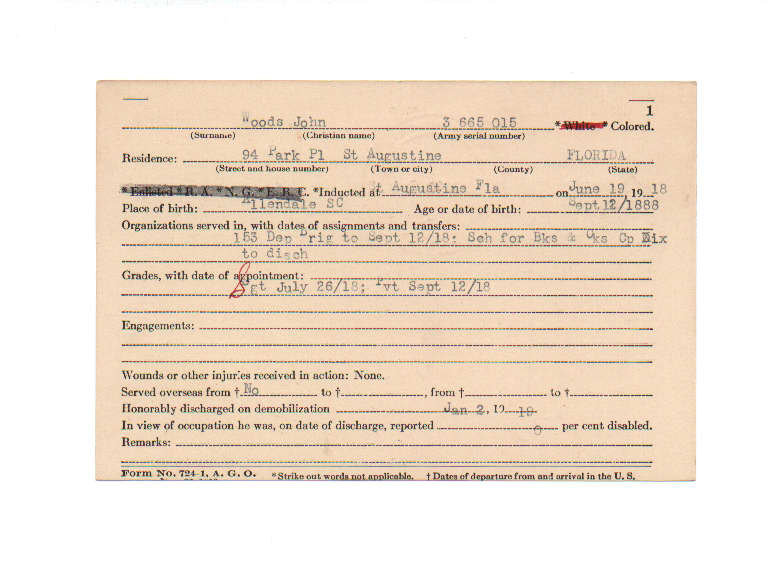 1
Woods John 3 665 015 *White* Colored.
(Surname) (Christian name) (Army serial number)
Residence: 94 Park Pl St Augustine FLORIDA
(Street and house number) (Town or city) (County) (State)
*Enlisted *R. A. *N. G. *E. R. C. *Inducted at St Augustine Fla on June 19, 19 18
Place of birth: Allendale SC Age or date of birth: Sept 12/1888
Organizations served in, with dates of assignments and transfers:
153 Dep Brig to Sept 12/18; Sch for Bks & Cks Cp Dix
to disch
Grades, with date of appointment:
Sgt July 26/18; Pvt Sept 12/18
Engagements:
Wounds or other injuries received in action: None.
Served overseas from † No to †, from † to †
Honorably discharged on demobilization Jan 2, 19 19
In view of occupation he was, on date of discharge, reported 0 per cent disabled.
Remarks:
Form No. 724-1, A. G. O. *Strike out words not applicable. † Dates of departure from and arrival in the U. S.